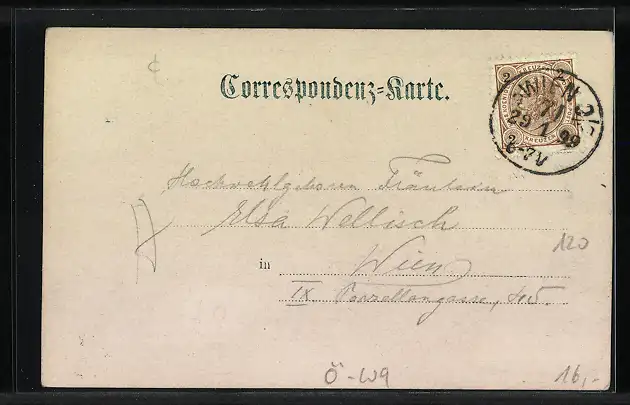 Correspondenz-Karte.
WIEN
29 1 99
6-7V
2 KREUZER 2
KREUZER
Hochwohlgeboren Fräulein
Elsa Wellisch
in Wien
IX. Porzellangasse,
120
Ö-W9
16,-